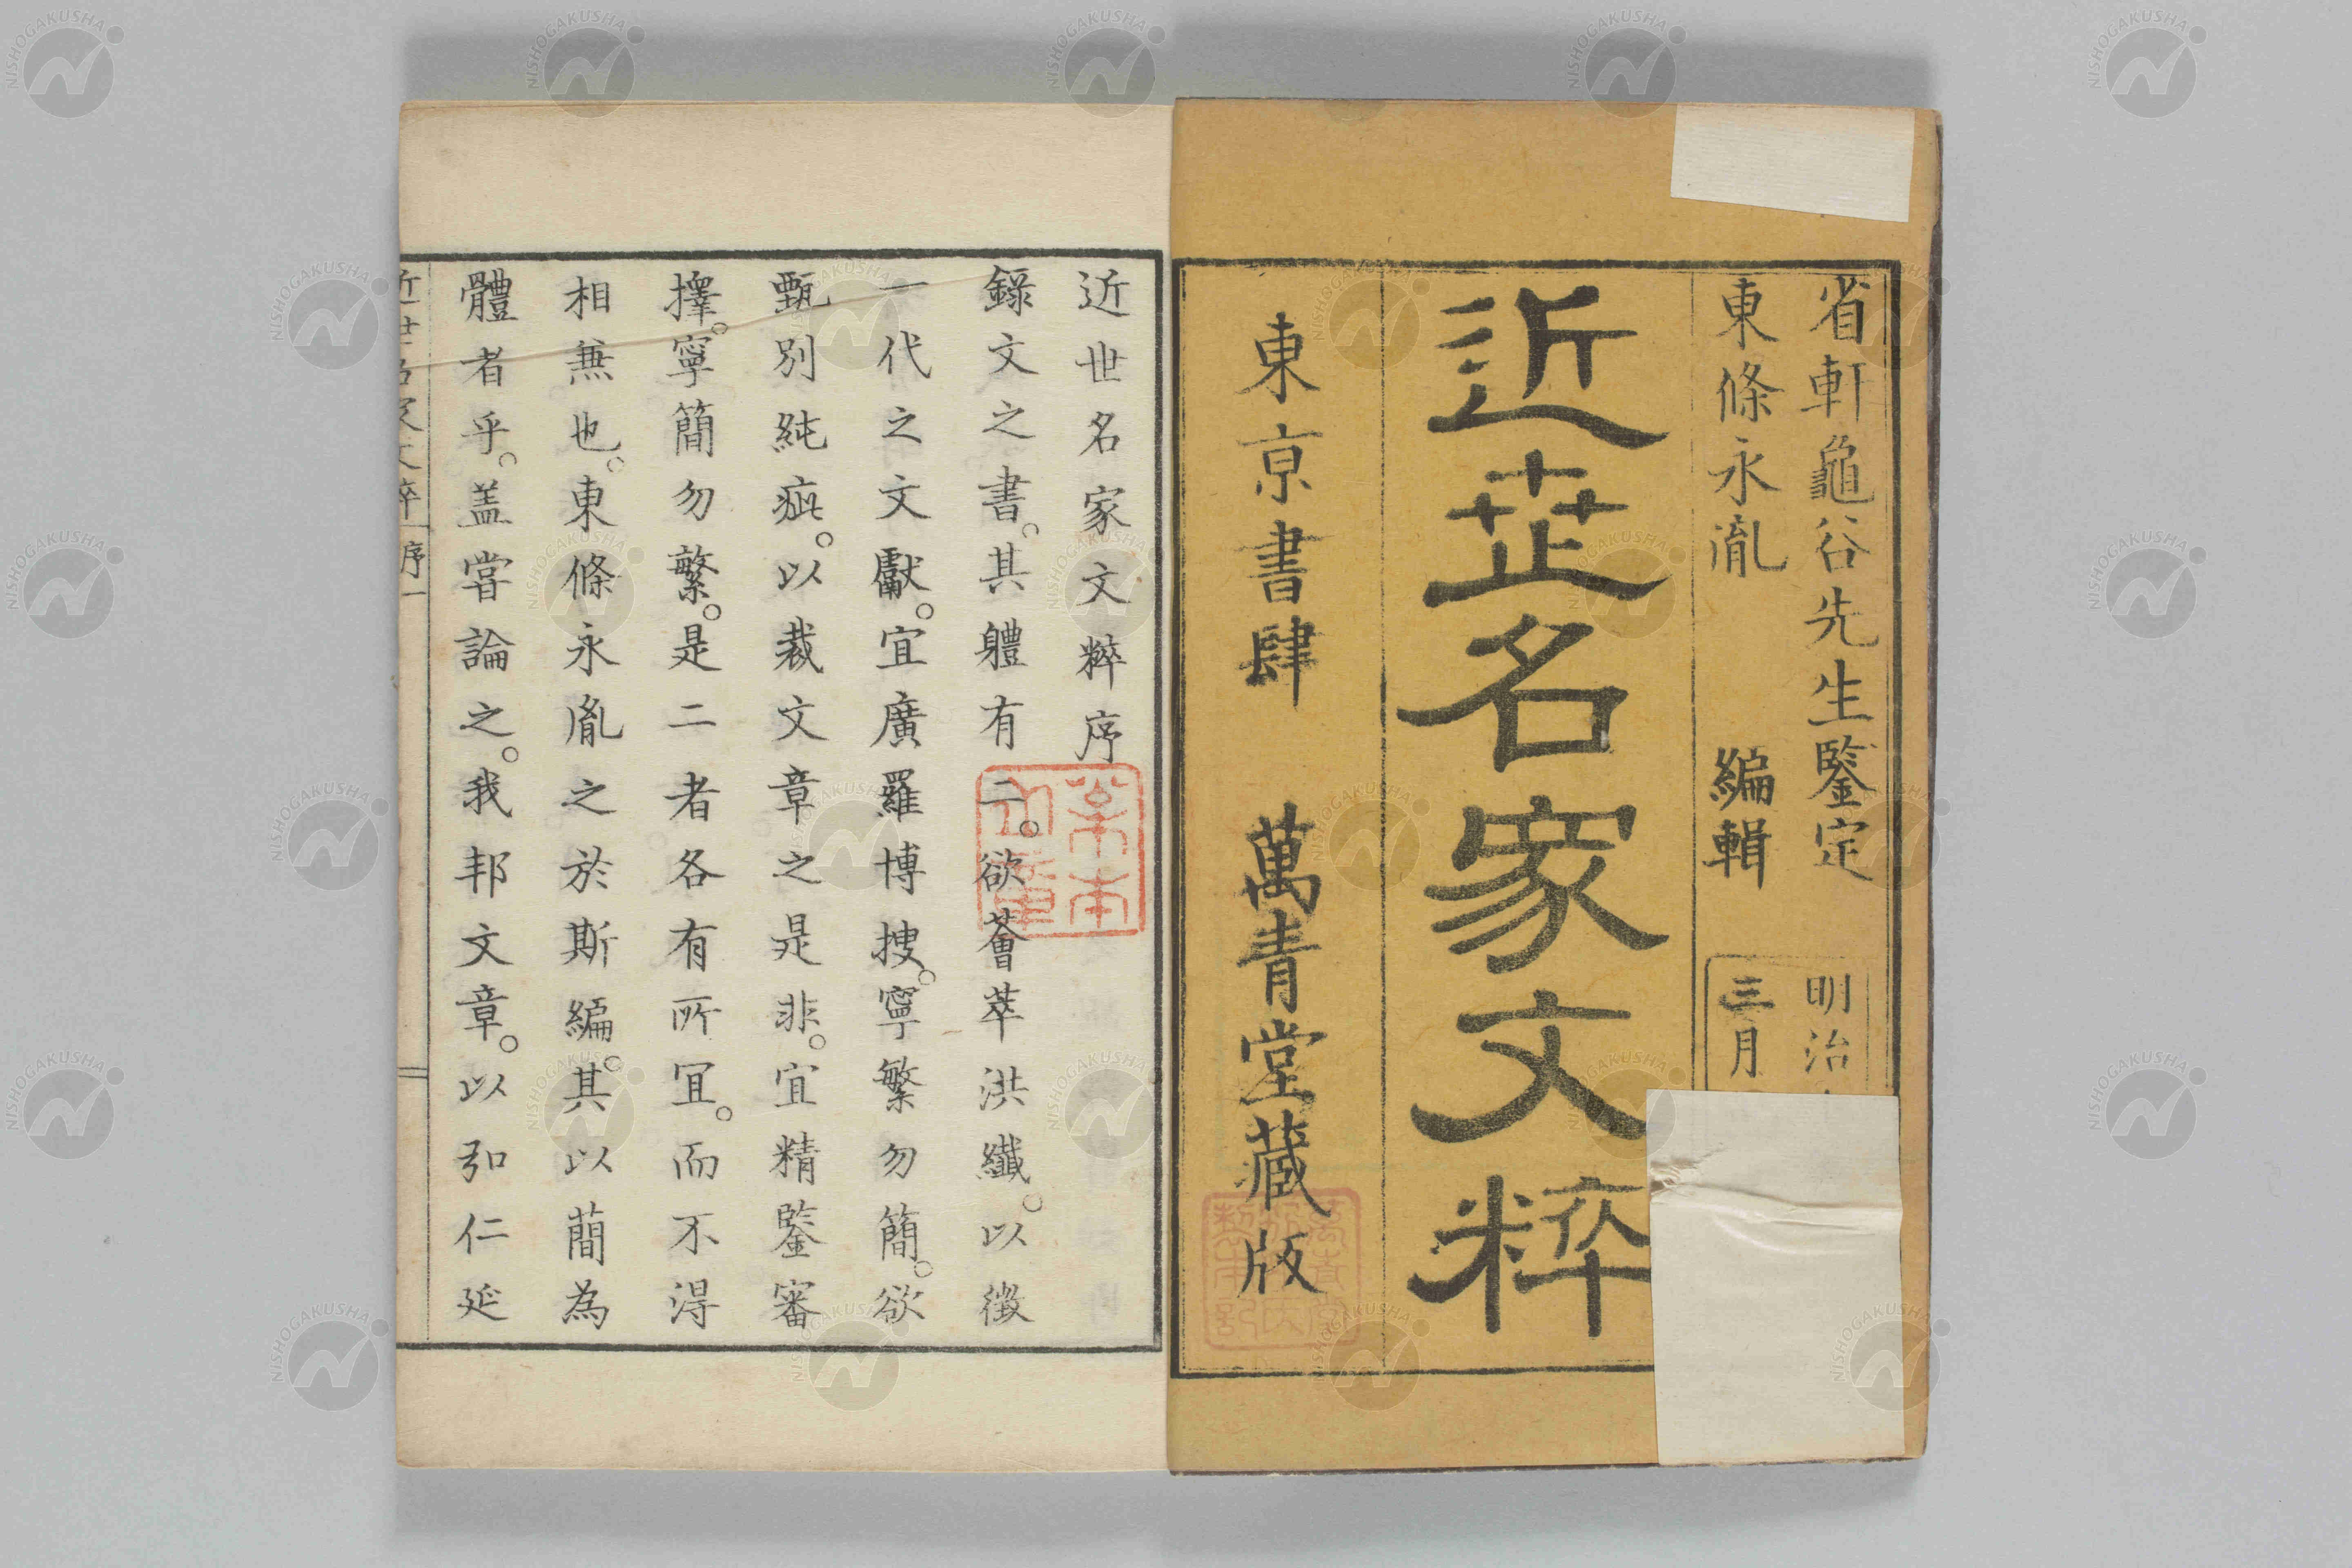 省軒龜谷先生鑒定
東條永胤 編輯
明治
三月
近芷名家文粹
東京書肆 萬青堂藏版
近世名家文粹序
錄文之書。其體有二。欲薈萃洪纖。以徵
一代之文獻。宜廣羅博搜。寧繁勿簡。欲
甄別純疵。以裁文章之是非。宜精鑒審
擇。寧簡勿繁。是二者各有所冝。而不得
相無也。東條永胤之於斯編。其以蕳為
體者乎。盖嘗論之。我邦文章。以弘仁延
近世名家文粹 序 一
NISHOGAKUSHA